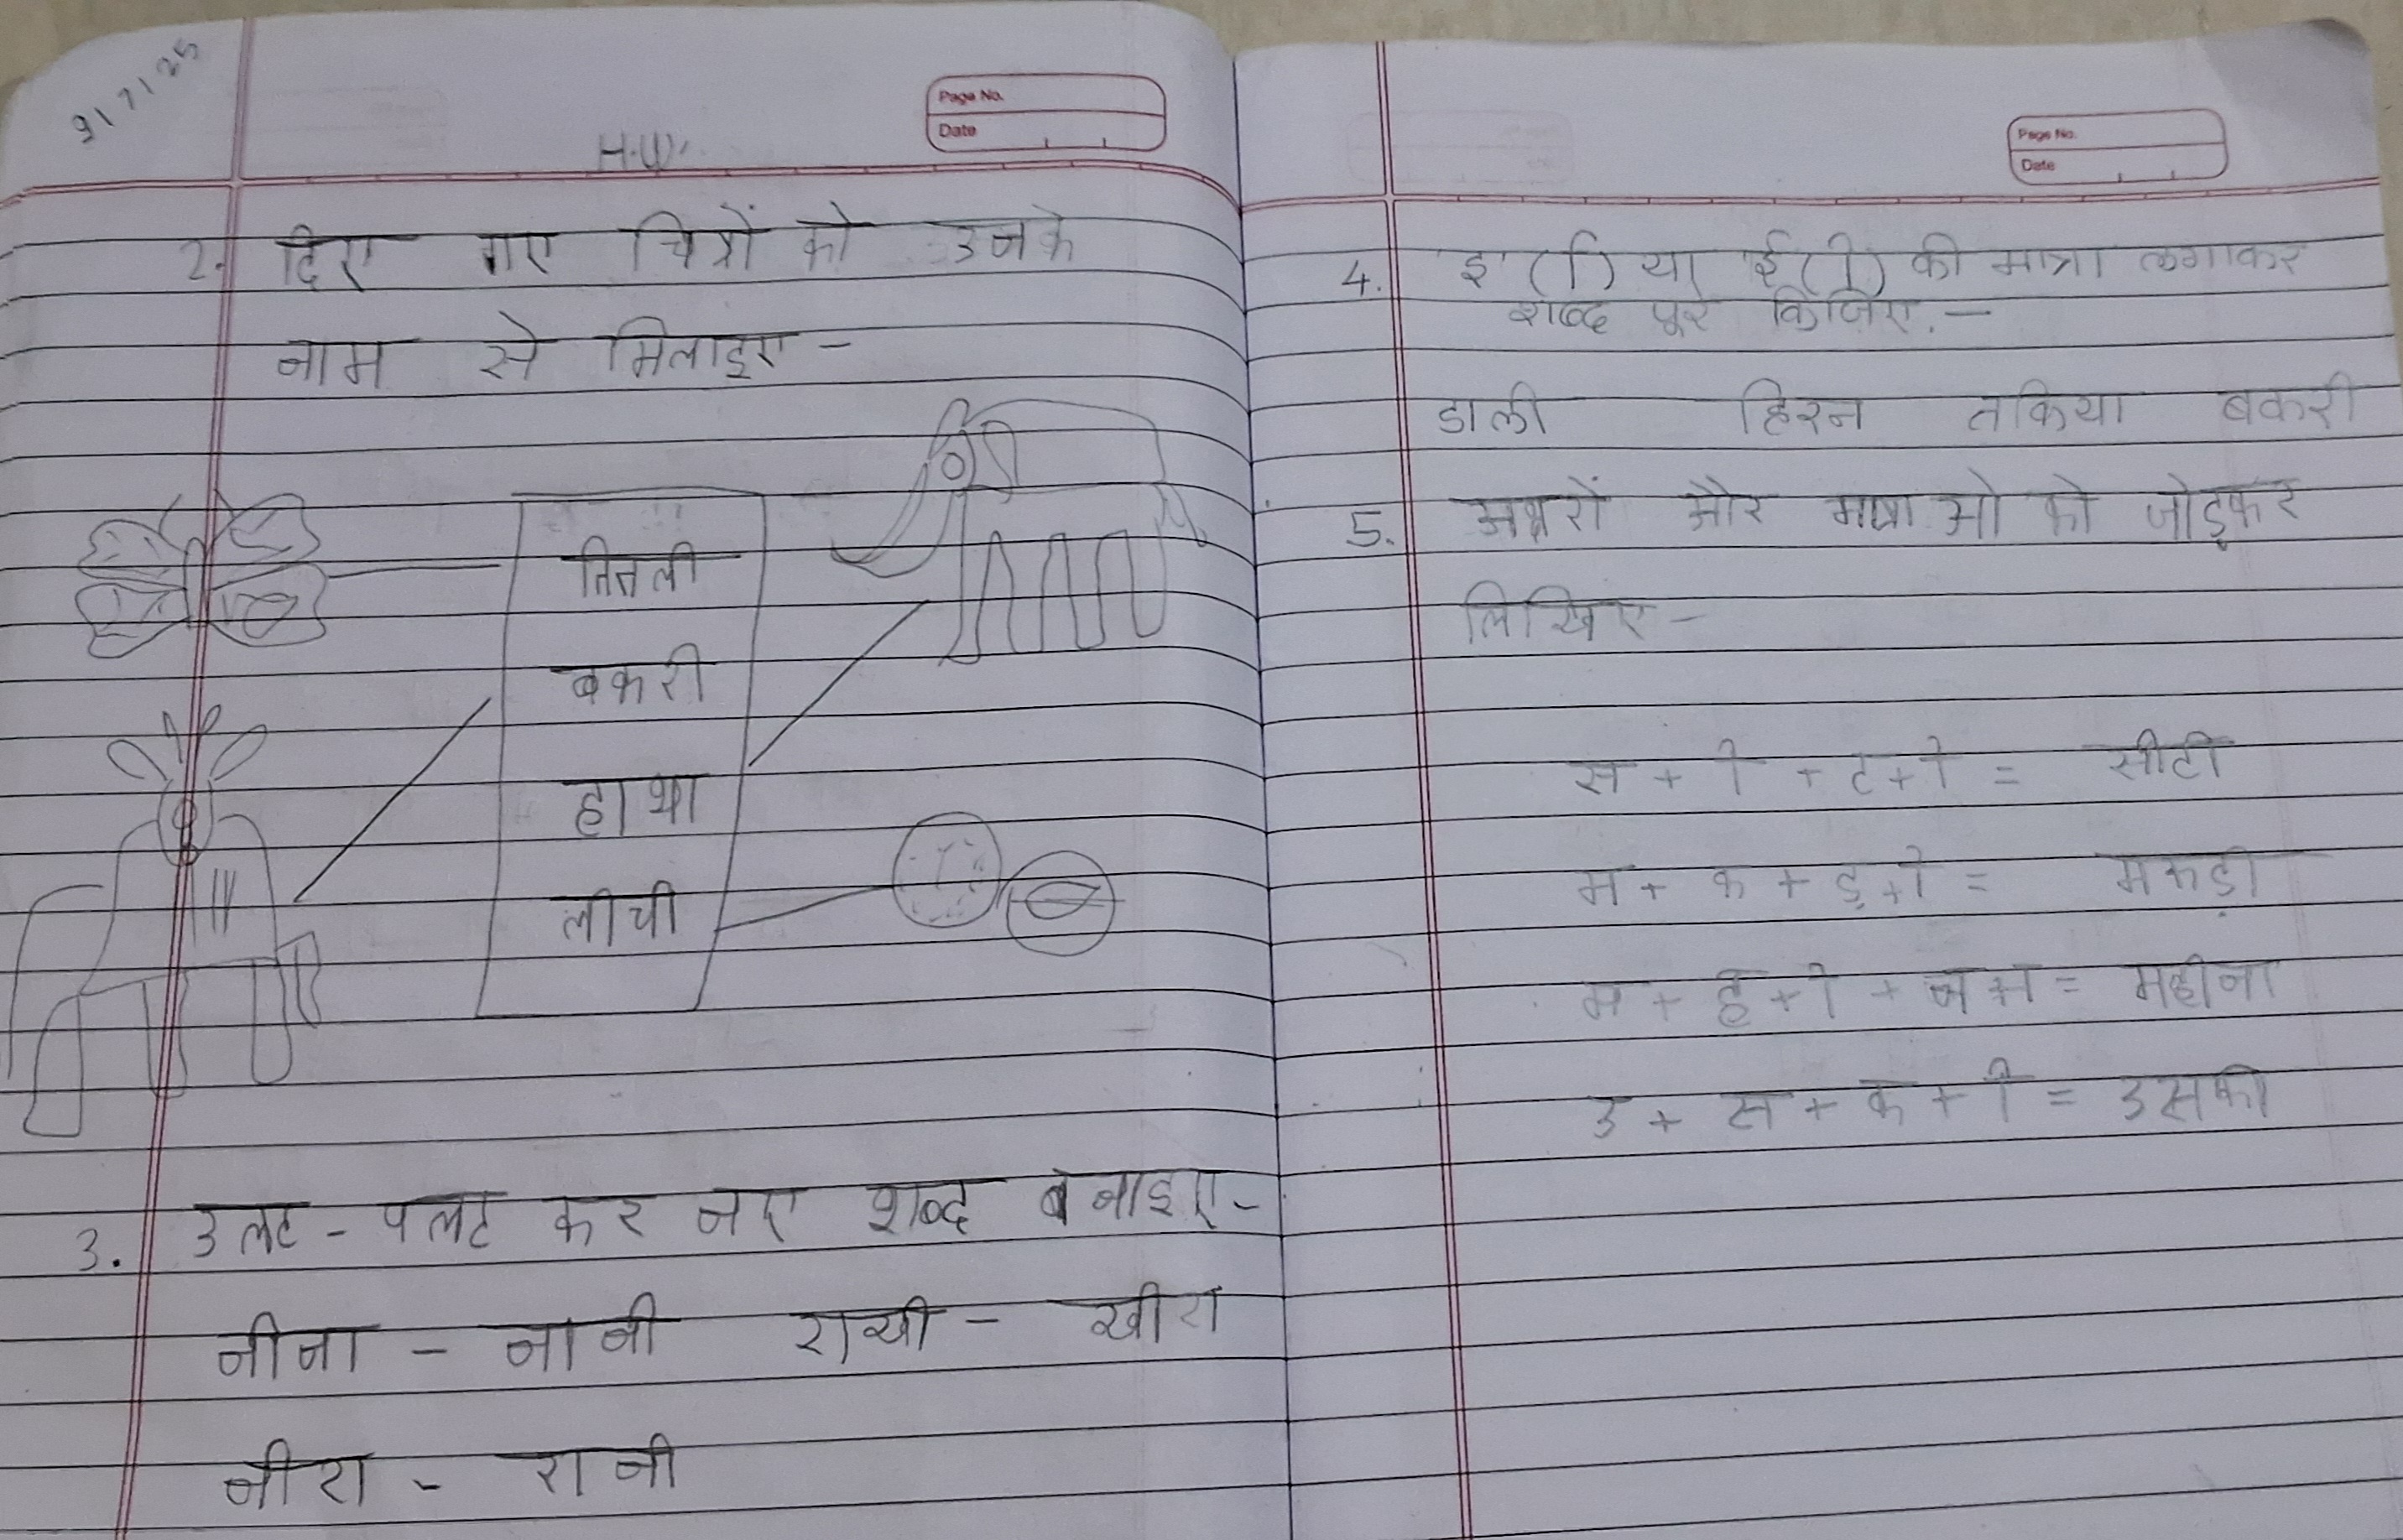 9/7/25
H.W.
Page No.
Date
2. दिए गए चित्रों को उनके
नाम से मिलाइए -
तितली
बकरी
हाथी
लीची
3. उलट - पलट कर नए शब्द बनाइए -
नीना - नानी राखी - खीरा
नीरा - रानी
Page No.
Date
4. इ (ि) या ई (ी) की मात्रा लगाकर
शब्द पूरे किजिए. -
डाली हिरन तकिया बकरी
5. अक्षरों और मात्राओ को जोड़कर
लिखिए -
स + ी + ट + ी = सीटी
म + क + ड़ + ी = मकड़ी
म + ह + ी + न + ा = महीना
उ + स + क + ी = उसकी